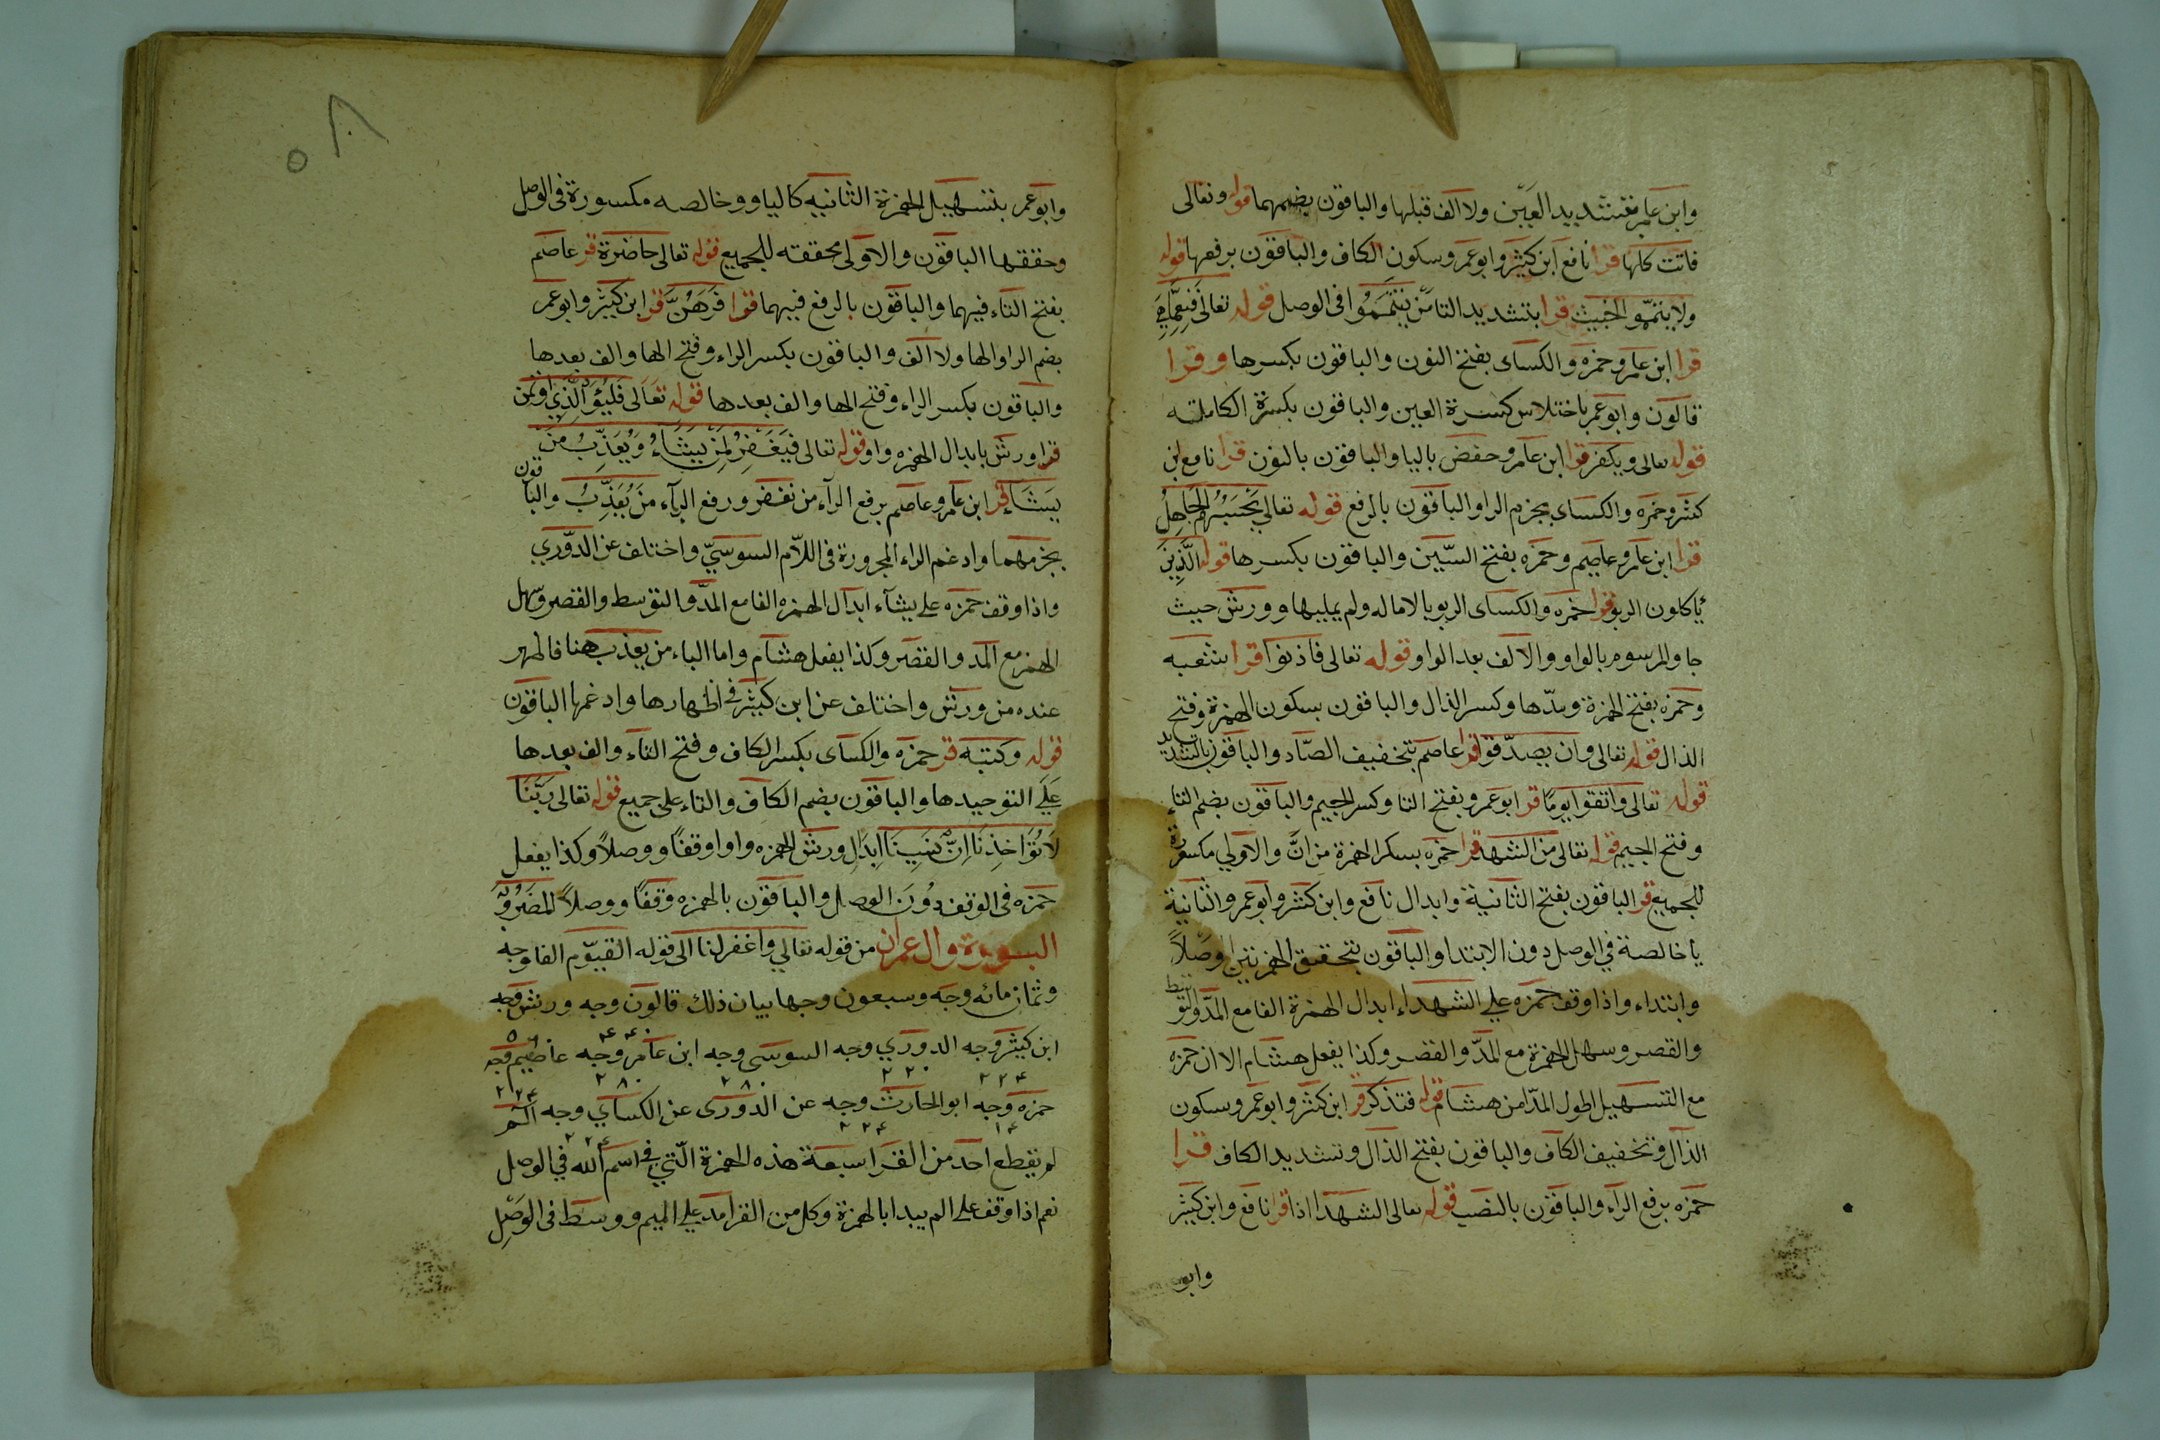 وابن عامر بتشديد العين ولا الف قبلها والباقون بضمهما قوله وتعالى
فاتت كلها قرا نافع ابن كثير وابوعمر وسكون الكاف والباقون برفعها قوله
ولا يتمموا الخبيث قرا بتشديد التا من يتمموا فى الوصل قوله تعالى فنعما هي
قرا ابن عامر وحمزه والكساى بفتح النون والباقون بكسرها وقرا
قالون وابوعمر باختلاس كسرة العين والباقون بكسرة الكاملته
قوله تعالى ويكفر قرا ابن عامر وحفض باليا والباقون بالنون قرا نافع ابن
كثر وحمزه والكساى بجزم الرا والباقون بالرفع قوله تعالي يحسبهم الجاهل
قرا ابن عامر وعاصم وحمزه بفتح السّين والباقون بكسرها قوله الّذين
يأكلون الربو قرا حمزه والكساى الربو بالاماله ولم يميلها وورش حيث
جا والمرسوم بالواو والالف بعد الواو قوله تعالى فاذنوا قرا بشعبه
وحمزه بفتح الهمزة ومدّها وكسر الذال والباقون بسكون الهمزة وفتح
الذال قوله تعالى وان يصدّقوا قرا عاصم بتخفيف الصّاد والباقون بالتشديد
قوله تعالى واتقوا يومًا قر ابوعمر وبفتح التا وكسر الجيم والباقون بضم التاء
وفتح الجيم قوله تعالى من الشهدا قرا حمزه بسكر الهمزة من انَّ والاولي مكسورة
للجميع قر الباقون بفتح الثانية وابدال نافع وابن كثر وابوعمر والثانية
يأ خالصة في الوصل دون الابتدا والباقون بتحقيق الهمزتين وصلاً
وابتداء واذا وقف حمزه علي الشهداء ابدال الهمزة الفا مع المدّ والتوسط
والقصر وسهل الهمزة مع المدّ والقصر وكذا يفعل هشام الا ان حمزه
مع التسهيل اطول المدّا من هشام قوله فتذكر قر ابن كثر وابوعمر وبسكون
الذال وتخفيف الكاف والباقون بفتح الذال وتشديد الكاف قرا
حمزه برفع الراء والباقون بالنصب قوله تعالى الشهدا اذا قرا نافع وابن كثير
وابو
٥٨
وابوعمر بتسهيل الهمزة الثانيه كاليا ووخالصه مكسورة فى الوصل
وحققها الباقون والاولى محققه للجميع قوله تعالى حاضرة قر عاصم
بفتح التاء فيهما والباقون بالرفع فيهما قوا فرهنٌ قر ابن كثير وابوعمر
بضم الرا والها ولا الف والباقون بكسر الراء وفتح الها والف بعدها
والباقون بكسر الراء وفتح الها والف بعدها قوله تعالى فليؤدّ الّذي اؤتمن
قرا ورش بابدال الهمزه واو قوله تعالى فيغفر لمن يشاءُ ويُعذّبُ من
يشاء قر ابن عامر وعاصم برفع الرآء من نغفر ورفع البآء من يُعذّبُ والباقون
بجزمهما وادغم الراء المجرورة فى اللاّم السوسيّ واختلف عن الدّوري
واذا وقف حمزه على يشآء ابدال الهمزه الفا مع المدّ والتوسط والقصر وسهل
الهمز مع المد والقصر وكذا يفعل هشام واما الباء من يعذب هنا فاظهر
عنده من ورش واختلف عن ابن كثير في اظهارها وادغمها الباقون
قوله وكتبه قر حمزه والكساى بكسر الكاف وفتح التاء والف بعدها
عَلَى التوحيدها والباقون بضم الكاف والتاء على جميع قوله تعالى ربّنا
لا تؤاخذنا ان نسينا ابدال ورش الهمزه واوا وقفًا ووصلاً وكذا يفعل
حمزه فى الوقف دون الوصل والباقون بالهمزه وقفًا ووصلاً المضروبُ
السورة وال عمران من قوله تعالي واغفرلنا الى قوله القيّوم الفا وجه
وثمان مائه وجه وسبعون وجها بيان ذلك قالون وجه ورش وجه
ابن كثير وجه الدوري وجه السوسى وجه ابن عامر وجه عاصم وجه
حمزه وجه ابو الحارث وجه عن الدورى عن الكساي وجه الۤم
لم يقطع احد من القرا سبعة هذه الهمزة الّتي فى اسم الله في الوصل
نعم اذا وقف على الم يبدا بالهمزة وكل من القرا مد على الميم ووسط فى الوصل